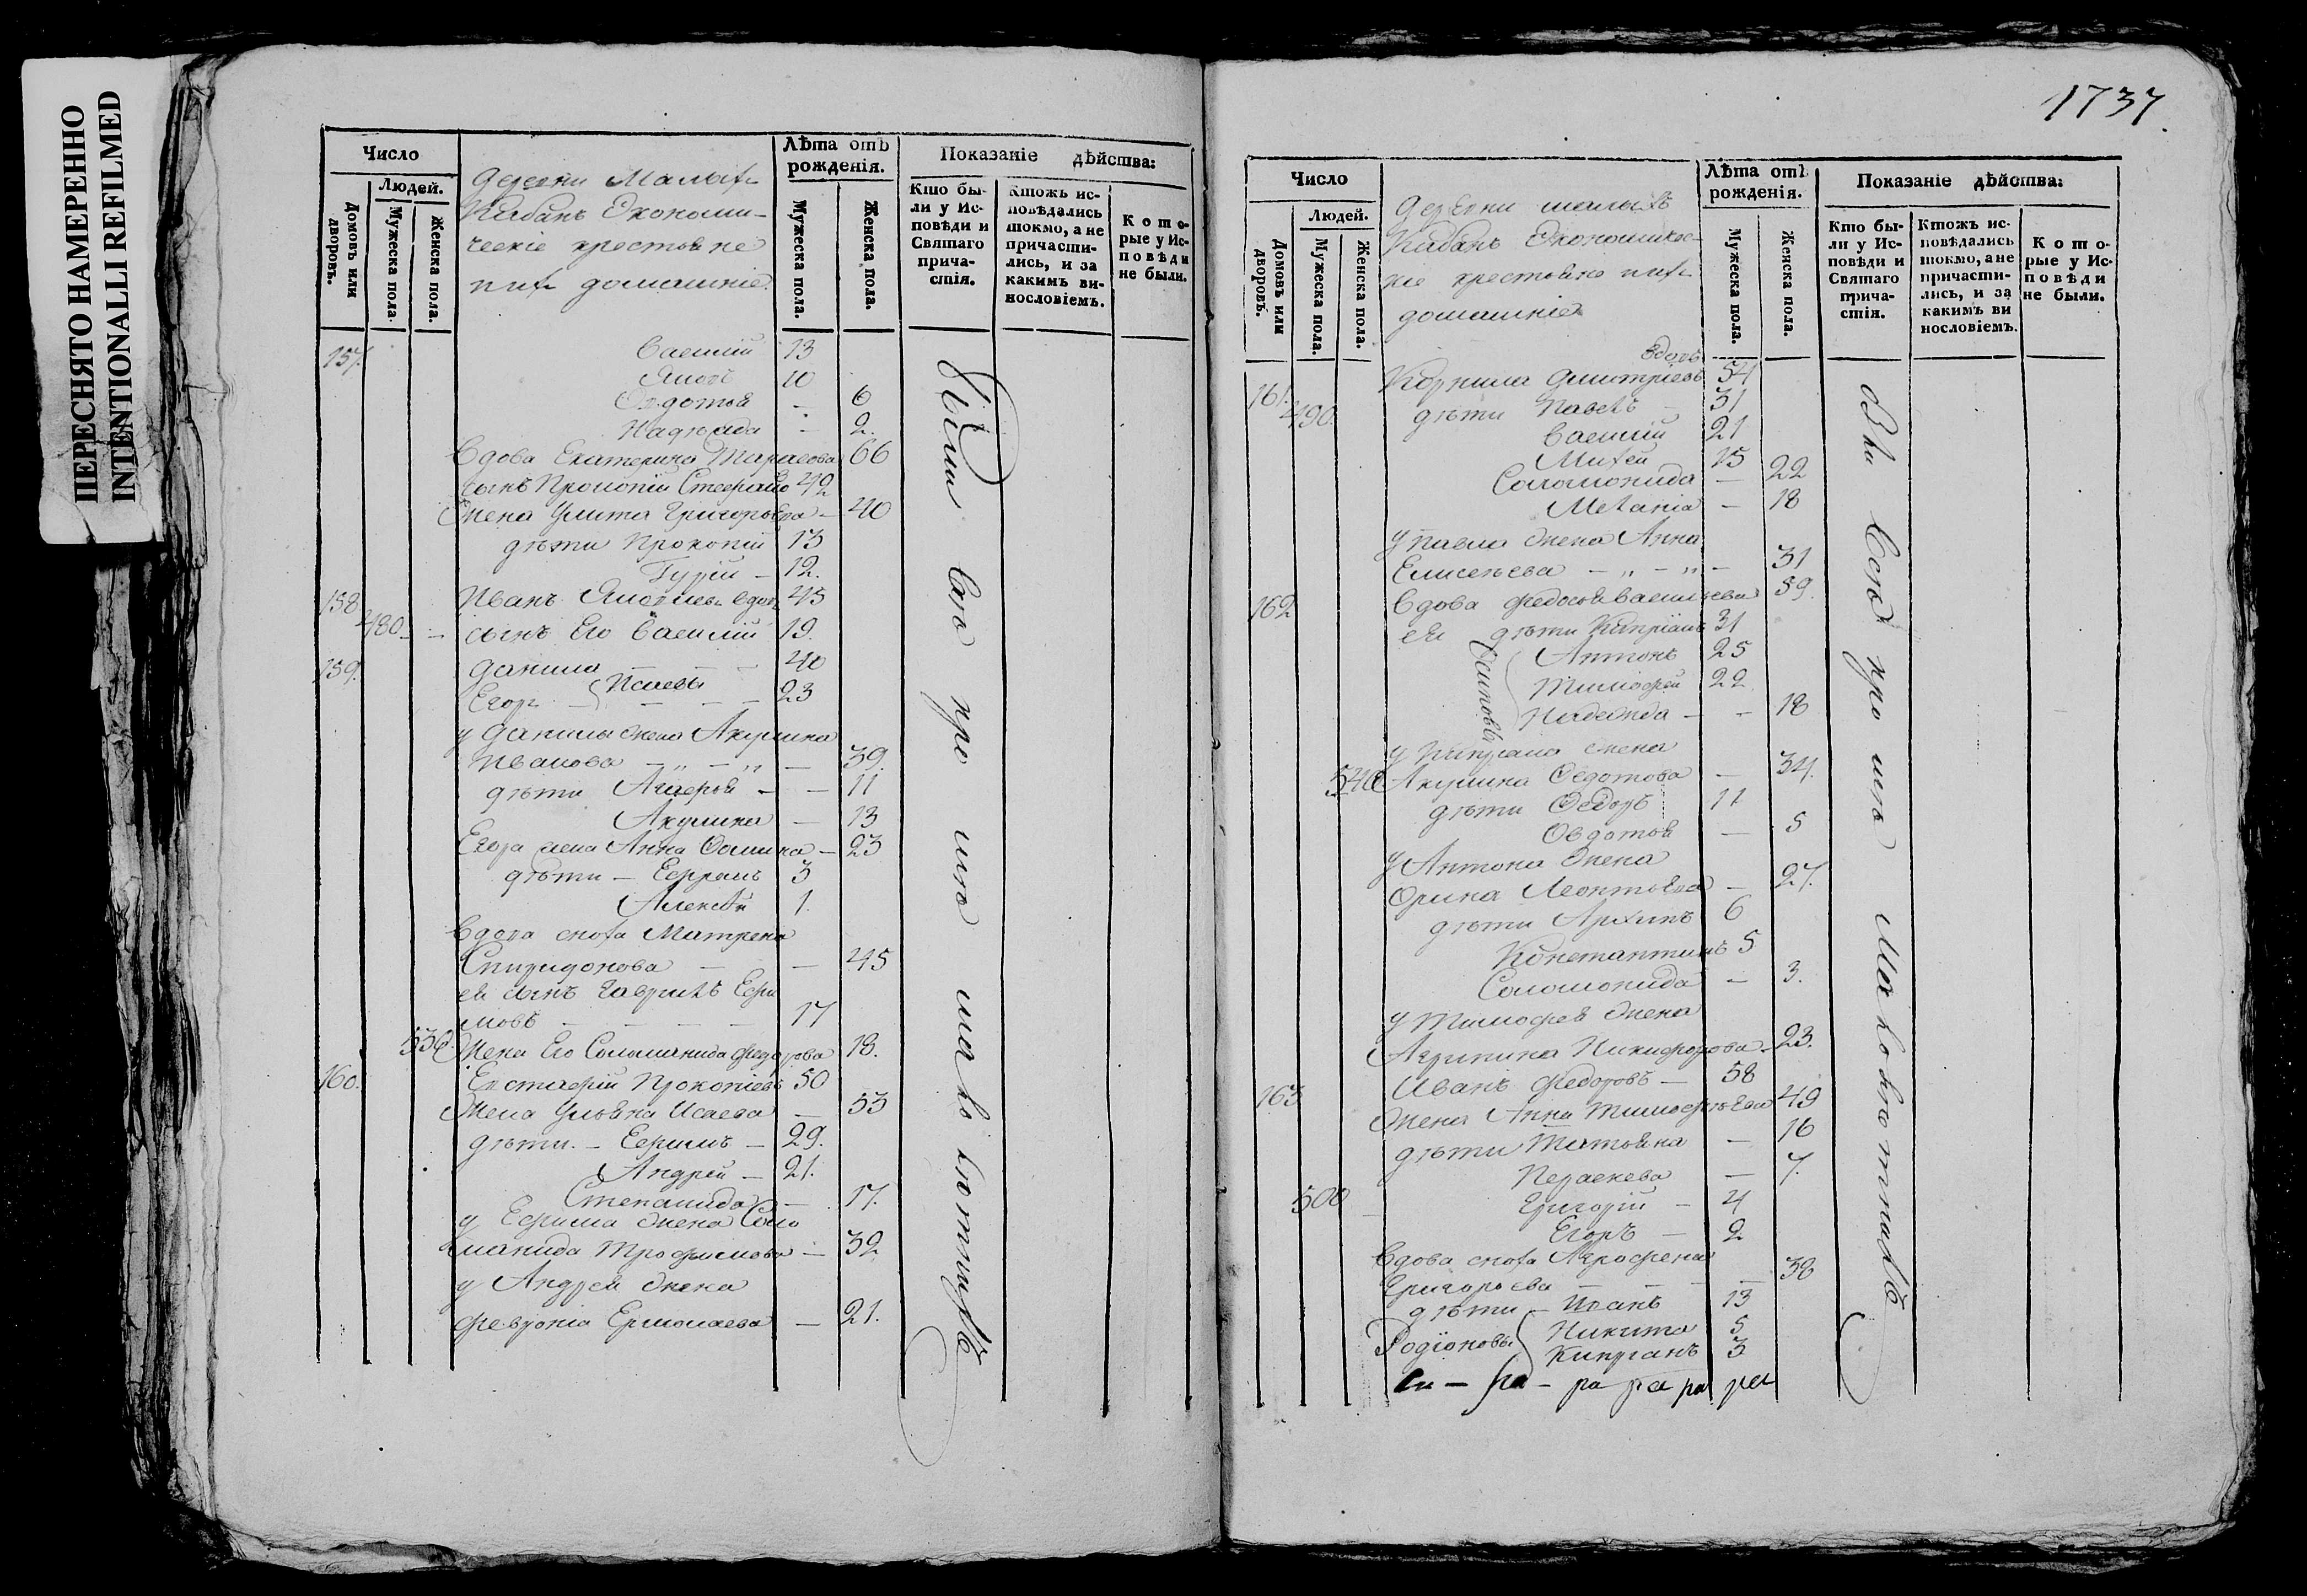 ПЕРЕСНЯТО НАМЕРЕННО
INTENTIONALLI REFILMED
Число
Людей.
Домовъ или дворовъ.
Мужеска пола.
Женска пола.
Деревни Малыхъ
Кабанъ Экономи-
ческіе крестьяне
ихъ домашніе
Лѣта отъ рожденія.
Мужеска пола.
Женска пола.
Показаніе дѣйства:
Кто бы-
ли у Ис-
повѣди и
Святаго
прича-
стія.
Ктожъ ис-
повѣдались
токмо, а не
причасти-
лись, и за
какимъ ви-
нословіемъ.
Кото-
рые у Ис-
повѣди
не были.
157. Василій 13
Яковъ 10
Овдотья - 6
Надежда - 2.
Вдова Екатерина Тарасова 66
сынъ Прокопій 42
Жена Улита Григорьева - 40
дѣти Прокопій 13
Гурій - 12.
158 Иванъ Яковлевъ вдов 45
480 - - сынъ Его Василій 19.
159. Данило - - - 40
Егоръ Исаевы - - - 23
у Данилы жена Акулина
Иванова - „ - „ - 39.
дѣти - - 11
Акулина - 13
Егора жена Анна Фомина - 23
дѣти - Ефремъ 3
Алексѣй 1.
Вдова сноха Матрена
Спиридонова - - 45
ея сынъ Гаврилъ Ефи
мовъ - - - - 17
536 Жена Его Соломанида Федорова 18.
160. Евстафій Прокопіевъ 50
Жена Ульяна Исаева - 53
дѣти. - Ефимъ - 29.
Андрей - 21.
Степанида - 17.
у Ефима жена Соло
манида Трофимова - 32
у Андрея жена
Февронія Ермолаева - 21.
1737.
Число
Людей.
Домовъ или дворовъ.
Мужеска пола.
Женска пола.
Деревни малыхъ
Кабанъ Экономичес-
кіе крестьяне ихъ
домашніе
Лѣта отъ рожденія.
Мужеска пола.
Женска пола.
Показаніе дѣйства:
Кто бы-
ли у Ис-
повѣди и
Святаго
прича-
стія.
Ктожъ ис-
повѣдались
токмо, а не
причасти-
лись, и за
какимъ ви
нословіемъ.
Кото-
рые у Ис-
повѣди
не были.
вдовъ
161. Корнила Дмитріевъ 54
490. дѣти Павелъ - 31
Василій 21
Михей 15
Соломонида - 22
Меланія - 18
у Павла жена Анна
Елисеѣева - „ - „ - 31
162 Вдова Федосья Васильева 59.
ея дѣти Кипріанъ 31
Осиповы
Антонъ 25
Тимофей 22
Надежда - - 18
у Кипріана жена
540 Акулина Федотова - 34.
дѣти Федоръ 11
Овдотья - 5
у Антона жена
Орина Леонтьева - 27.
дѣти Архипъ 6
Константинъ 5
Соломонида - 3.
у Тимофея жена
Агрипина Никифорова - 23.
163 Иванъ Федоровъ - 58
Жена Анна Тимофѣева 49
дѣти Татьяна - 16
Пераскева - 7.
500 Григорій - 4
Егоръ - 2
Вдова сноха Агрофена
Григорьева - - - - 38
дѣти - Иванъ 13
Родіоновы Никита 5
Кипріанъ 3